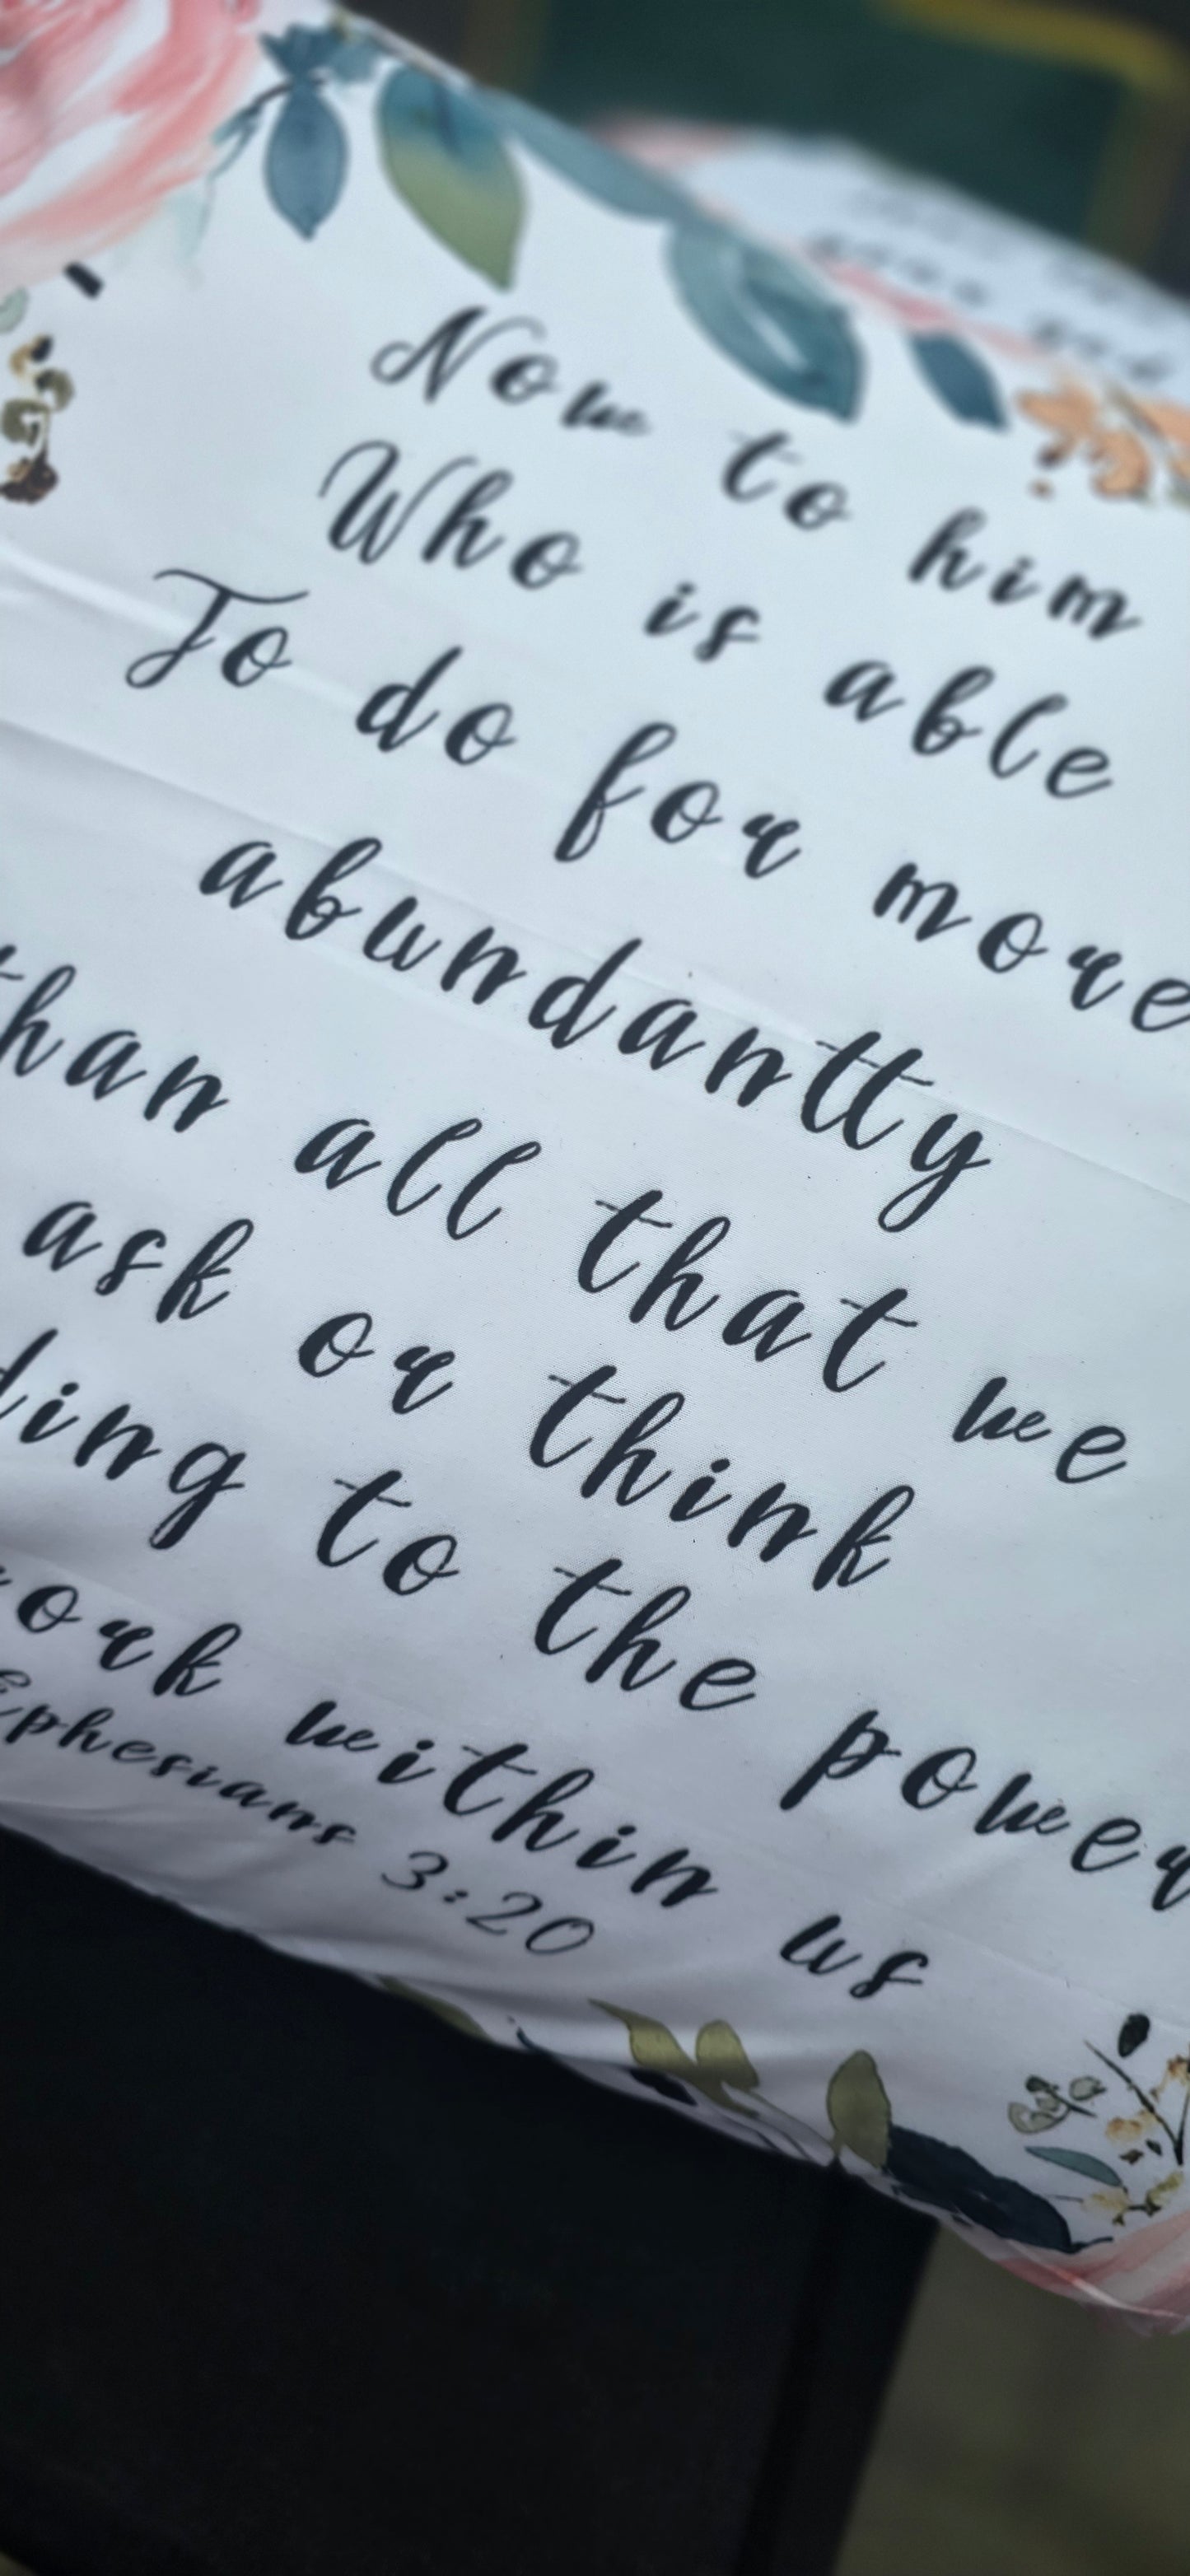 Now to him
Who is able
To do for more
abundantty
than all that we
ask or think
ding to the power
work within us
Ephesians 3:20